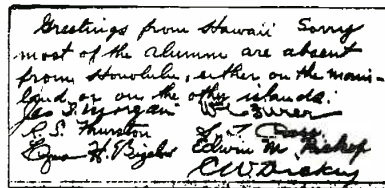 Greetings from Hawaii Sorry
most of the alumni are absent
from Honolulu, either on the main-
land or on the other islands.
Jas F. Morgan
R. S. Thurston
Lyman H. Bigelow Edwin M. Bishop
C W. Dickey